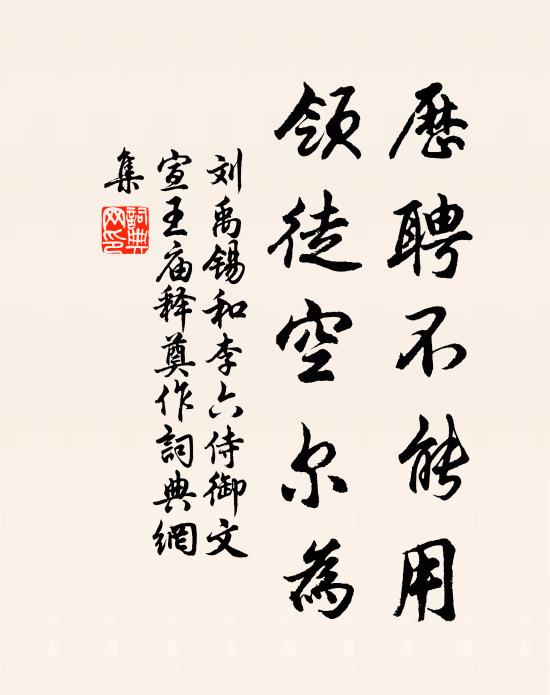 歷聘不能用
領徒空尔為
刘禹锡和李六侍御文
宣王庙释奠作詞典網
集
詞典
网印